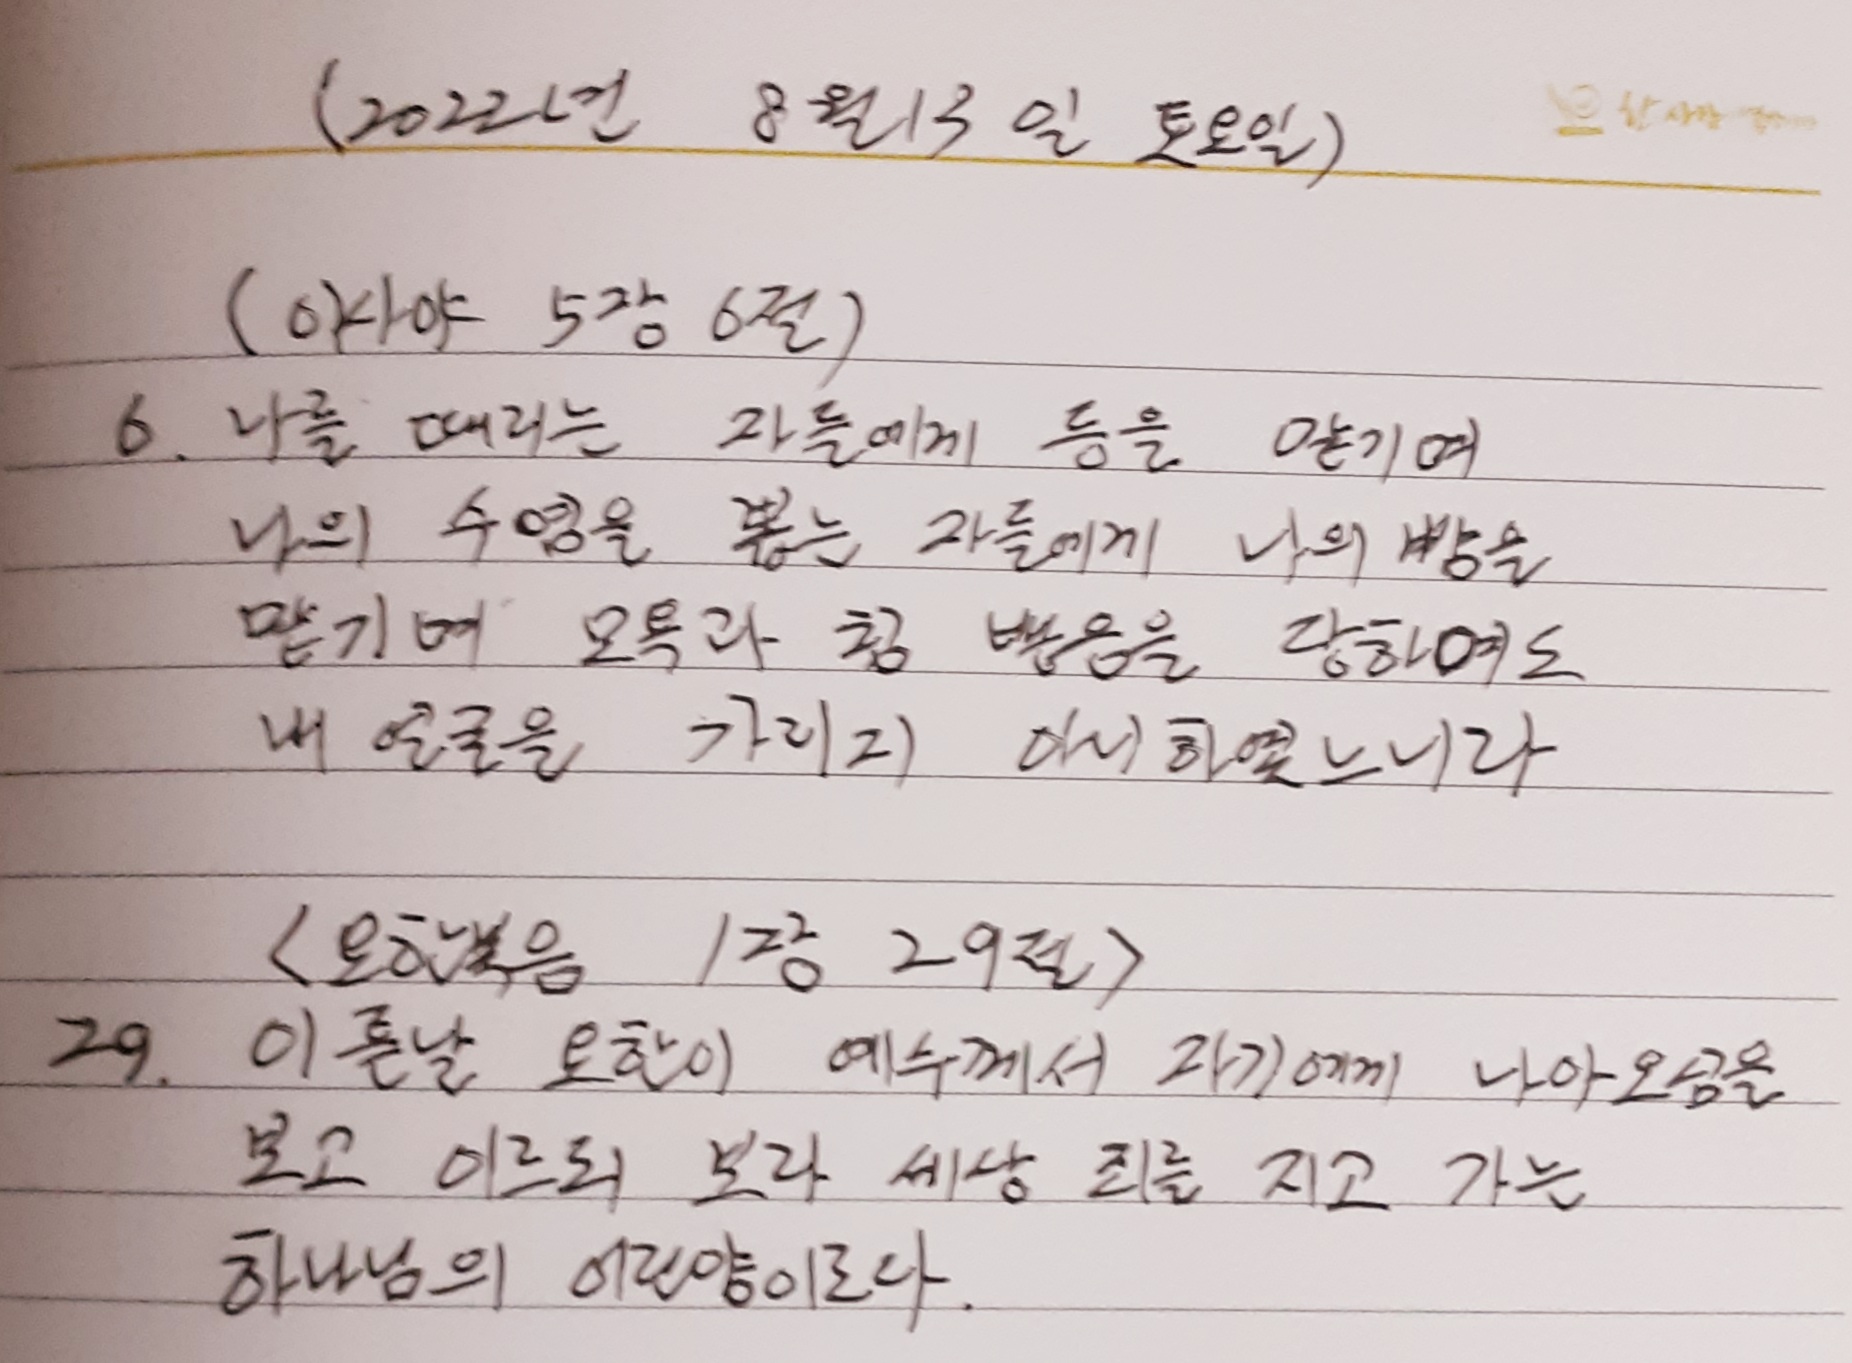 (2022년 8월13일 토요일)
(이사야 5장 6절)
6. 나를 때리는 자들에게 등을 맏기며
나의 수염을 뽑는 자들에게 나의 뺨을
맏기며 모욕과 침 뱉음을 당하여도
내 얼굴을 가리지 아니하였느니라
<요한복음 1장 29절>
29. 이튿날 요한이 예수께서 자기에게 나아오심을
보고 이르되 보라 세상 죄를 지고 가는
하나님의 어린양이로다.